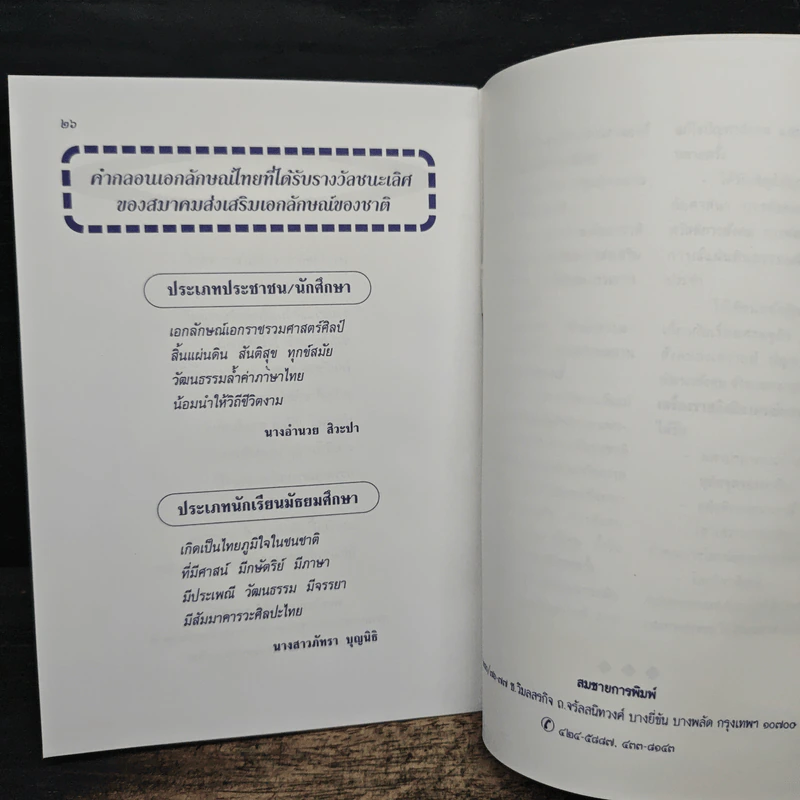 ๒๖
คำกลอนเอกลักษณ์ไทยที่ได้รับรางวัลชนะเลิศ
ของสมาคมส่งเสริมเอกลักษณ์ของชาติ
ประเภทประชาชน/นักศึกษา
เอกลักษณ์เอกราชรวมศาสตร์ศิลป์
สิ้นแผ่นดิน สันติสุข ทุกข์สมัย
วัฒนธรรมล้ำค่าภาษาไทย
น้อมนำให้วิถีชีวิตงาม
นางอำนวย สิวะปา
ประเภทนักเรียนมัธยมศึกษา
เกิดเป็นไทยภูมิใจในชนชาติ
ที่มีศาสน์ มีกษัตริย์ มีภาษา
มีประเพณี วัฒนธรรม มีจรรยา
มีสัมมาคารวะศิลปะไทย
นางสาวภัทรา บุญนิธิ
สมชายการพิมพ์
ซ.วิมลสรกิจ ถ.จรัลสนิทวงศ์ บางยี่ขัน บางพลัด กรุงเทพฯ ๑๐๗๐๐
๔๒๔-๕๘๘๗, ๔๓๓-๘๑๔๓